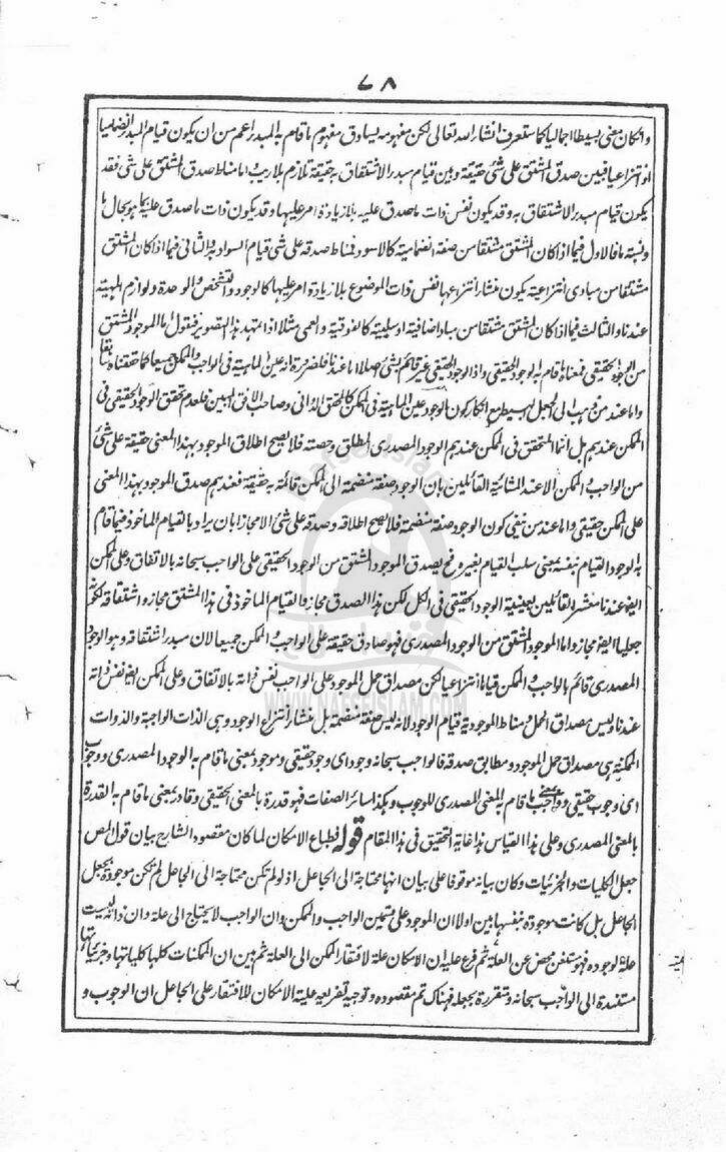 ٧٨
وانكان معنى بسيطا اجماليا كما ستعرف انشاء الله تعالى لكن مفهومه يساوق مفهوم ما قام به المبدء اعم من ان يكون قيام المبدء انضماميا
او انتزاعيا فبين صدق المشتق على شئ حقيقة وبين قيام مبدء الاشتقاق به حقيقة تلازم بلا ريب اما مناط صدق المشتق على شئ فقد
يكون قيام مبدء الاشتقاق به وقد يكون نفس ذات ما صدق عليه بلا زيادة امر عليها وقد يكون ذات ما صدق عليه بما هو بحال ما
ونسبة ما فالاول فيما اذا كان المشتق مشتقا من صفة انضمامية كالاسود فمناط صدقه على شئ قيام السواد به والثانى فيما اذا كان المشتق
مشتقا من مبادى انتزاعية يكون منشأ انتزاعها نفس ذات الموضوع بلا زيادة امر عليها كالوجود والتشخص والوحدة ولوازم المهية
عندنا والثالث فيما اذا كان المشتق مشتقا من مباد اضافية او سلبية كالفوقية والعمى مثلا اذا تمهد هذا التصوير فنقول اما الموجود المشتق
من الوجود الحقيقى فمعناه ما قام به الوجود الحقيقى واذ الوجود الحقيقى غير قائم بشئ اصلا اما عندنا فلضرورة انه عين الماهية فى الواجب والممكن جميعا كما حققناه سابقا
واما عند من ذهب الى الجعل البسيط مع انكار كون الوجود عين الماهية فى الممكن كالمحقق الدوانى وصاحب الافق المبين فلعدم تحقق الوجود الحقيقى فى
الممكن عندهم بل انما المتحقق فى الممكن عندهم الوجود المصدرى المطلق وحصته فلا يصح اطلاق الموجود بهذا المعنى حقيقة على شئ
من الواجب والممكن الا عند المشائية القائلين بان الوجود صفة منضمة الى الممكن قائمة به حقيقة فعندهم صدق الموجود بهذا المعنى
على الممكن حقيقى واما عند من نفى كون الوجود صفة منضمة فلا يصح اطلاقه وصدقه على شئ الا مجازا بان يراد بالقيام الماخوذ فيما قام
به الوجود القيام بنفسه بمعنى سلب القيام بغيره فح يصدق الموجود المشتق من الوجود الحقيقى على الواجب سبحانه بالاتفاق وعلى الممكن
ايض عندنا معشر القائلين بعينية الوجود الحقيقى فى الكل لكن هذا الصدق مجاز والقيام الماخوذ فى هذا المشتق مجاز واشتقاقه لكونه
جعليا ايض مجاز واما الموجود المشتق من الوجود المصدرى فهو صادق حقيقة على الواجب والممكن جميعا لان مبدء اشتقاقه وهو الوجود
المصدرى قائم بالواجب والممكن قياما انتزاعيا لكن مصداق حمل الموجود على الواجب نفس ذاته بالاتفاق وعلى الممكن ايض نفس ذاته
عندنا وليس مصداق الحمل ومناط الموجودية قيام الوجود لانه ليس صفة منضمة بل منشأ انتزاع الوجود وهى الذات الواجبة والذوات
الممكنة هى مصداق حمل الموجود ومطابق صدقه فالواجب سبحانه وجود اى وجود حقيقى وموجود بمعنى ما قام به الوجود المصدرى ووجوب
اى وجوب حقيقى وواجب بمعنى ما قام به المعنى المصدرى للوجوب وهكذا سائر الصفات فهو قدرة بالمعنى الحقيقى وقادر بمعنى ما قام به القدرة
بالمعنى المصدرى وعلى هذا القياس هذا غاية التحقيق فى هذا المقام قوله فطباع الامكان لما كان مقصود الشارح بيان قول المص
جعل الكليات والجزئيات وكان بيانه موقوفا على بيان انها محتاجة الى الجاعل اذ لو لم تكن محتاجة الى الجاعل لم تكن موجودة بجعل
الجاعل بل كانت موجودة بنفسها بين اولا ان الموجود على قسمين الواجب والممكن وان الواجب لا يحتاج الى علة وان ذاته ليست
علة لوجوده فهو مستغن محض عن العلة ثم فرع عليه ان الامكان علة لافتقار الممكن الى العلة ثم بين ان الممكنات كلها كلياتها وجزئياتها
مستندة الى الواجب سبحانه ومتقررة بجعله فهناك تم مقصوده وتوجيه تفريعه علية الامكان للافتقار على الجاعل ان الوجوب و
WWW.NAFSEISLAM.COM